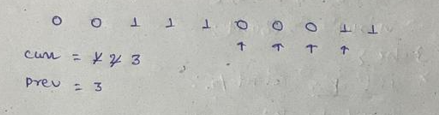 0 0 1 1 1 0 0 0 1 1
↑ ↑ ↑ ↑
curr = 1 2 3
prev = 3